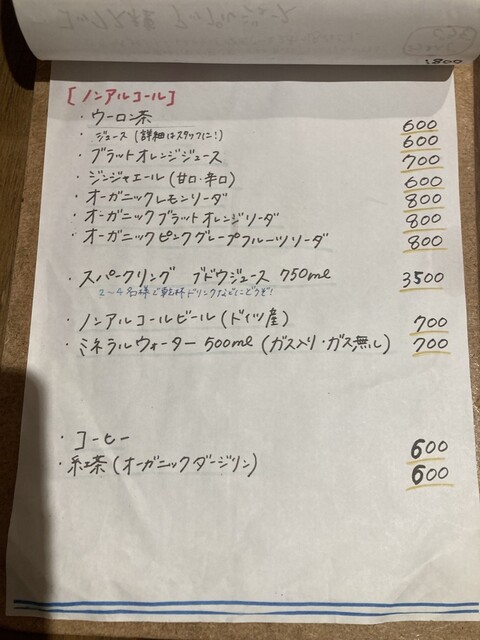 1800
[ノンアルコール]
・ウーロン茶 600
・ジュース(詳細はスタッフに!) 600
・ブラットオレンジジュース 700
・ジンジャエール(甘口・辛口) 600
・オーガニックレモンソーダ 800
・オーガニックブラットオレンジソーダ 800
・オーガニックピンクグレープフルーツソーダ 800
・スパークリング ブドウジュース 750ml 3500
2〜4名様で乾杯ドリンクなどにどうぞ!
・ノンアルコールビール(ドイツ産) 700
・ミネラルウォーター500ml(ガス入り・ガス無し) 700
・コーヒー 600
・紅茶(オーガニックダージリン) 600